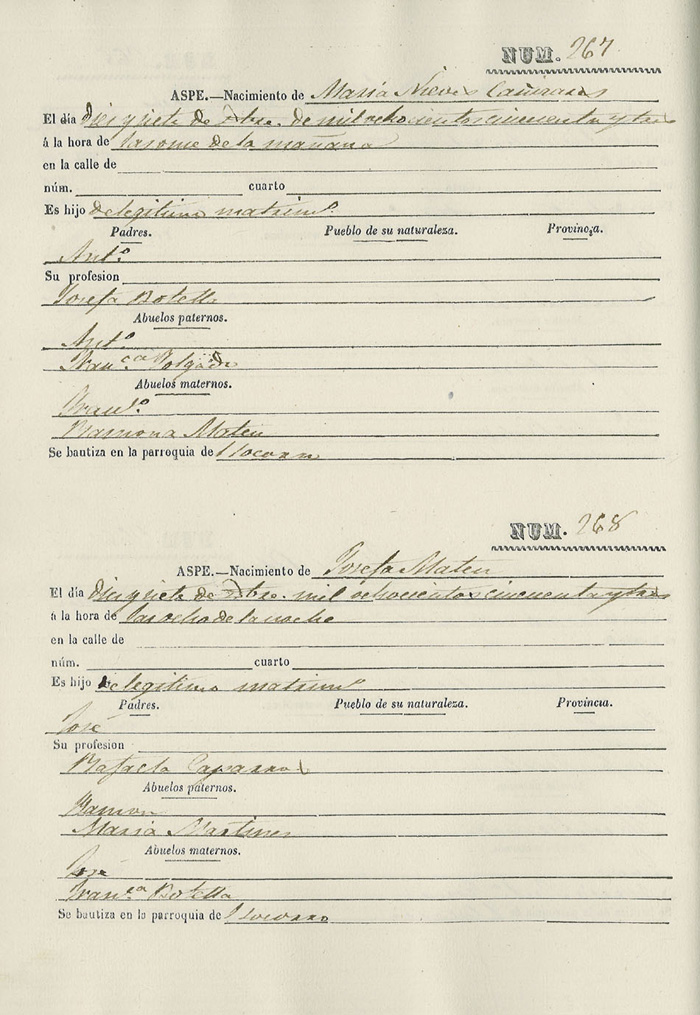 NUM. 267
ASPE.—Nacimiento de Maria Nieves Cañizares
El día diez y siete de 7bre. de mil ochocientos cincuenta y tres
á la hora de las once de la mañana
en la calle de
núm. cuarto
Es hijo de legitimo matrimo.
Padres. Pueblo de su naturaleza. Provincia.
Anto.
Su profesion
Josefa Botella
Abuelos paternos.
Anto.
Franca.
Abuelos maternos.
Franco.
Ramona Mateu
Se bautiza en la parroquia de Socorro
NUM. 268
ASPE.—Nacimiento de Josefa Mateu
El día diez y siete de 7bre. mil ochocientos cincuenta y tres
á la hora de las ocho de la noche
en la calle de
núm. cuarto
Es hijo de legitimo matrimo.
Padres. Pueblo de su naturaleza. Provincia.
José
Su profesion
Rafaela Caparros
Abuelos paternos.
Ramon
Maria Martinez
Abuelos maternos.
José
Franca. Botella
Se bautiza en la parroquia de Socorro